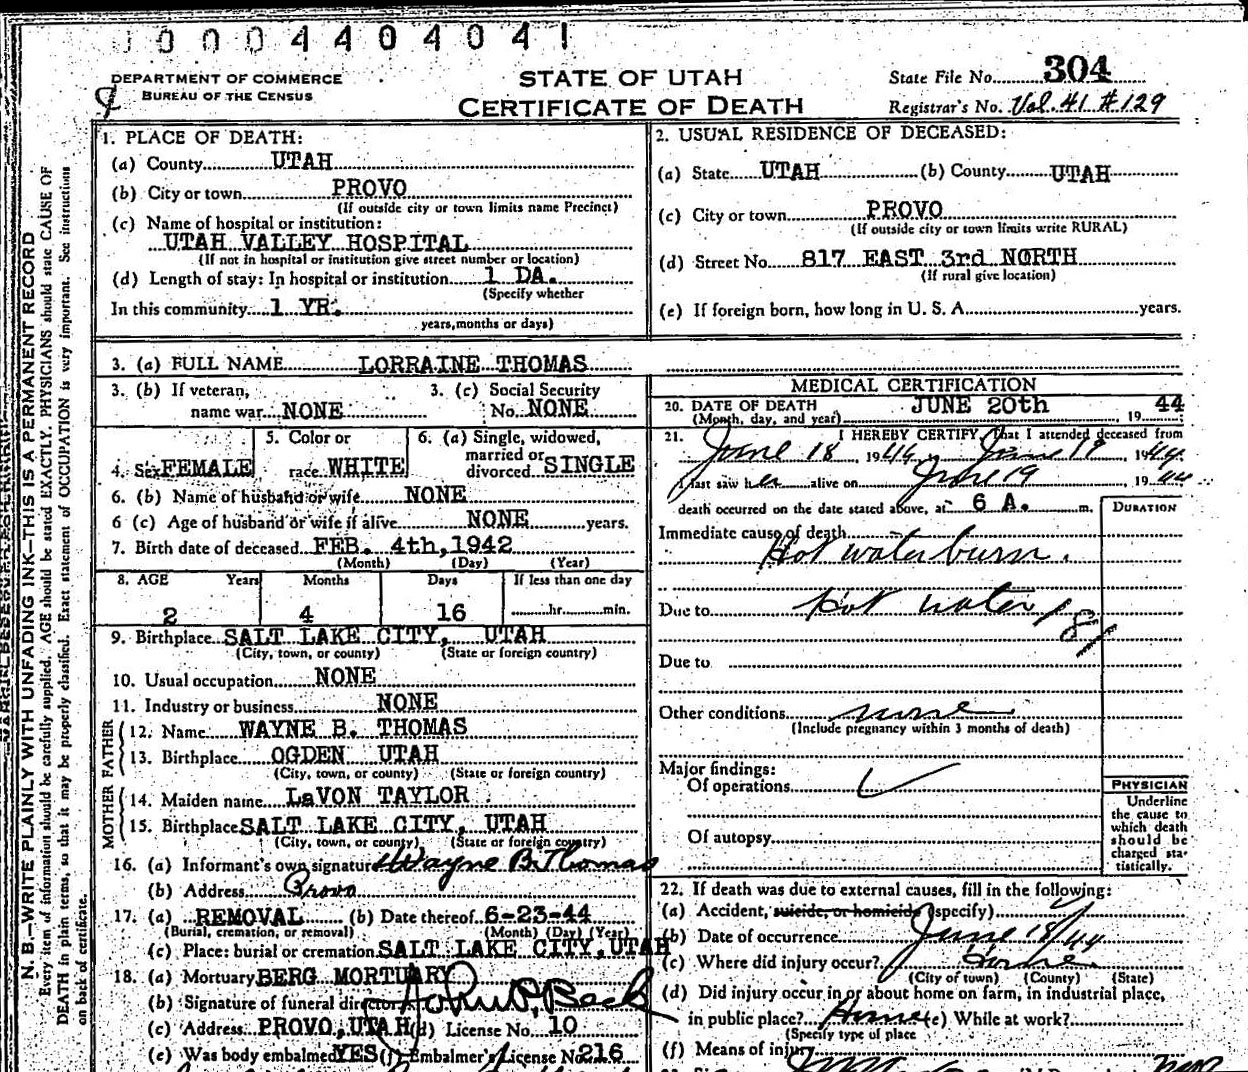 0004404041
DEPARTMENT OF COMMERCE
BUREAU OF THE CENSUS
STATE OF UTAH
CERTIFICATE OF DEATH
State File No. 304
Registrar's No. Vol. 41 #129
N. B.—WRITE PLAINLY WITH UNFADING INK—THIS IS A PERMANENT RECORD
Every item of information should be carefully supplied. AGE should be stated EXACTLY. PHYSICIANS should state CAUSE OF
DEATH in plain terms, so that it may be properly classified. Exact statement of OCCUPATION is very important. See instructions
on back of certificate.
1. PLACE OF DEATH:
(a) County UTAH
(b) City or town PROVO
(If outside city or town limits name Precinct)
(c) Name of hospital or institution:
UTAH VALLEY HOSPITAL
(If not in hospital or institution give street number or location)
(d) Length of stay: In hospital or institution 1 DA.
(Specify whether
In this community 1 YR.
years, months or days)
2. USUAL RESIDENCE OF DECEASED:
(a) State UTAH (b) County UTAH
(c) City or town PROVO
(If outside city or town limits write RURAL)
(d) Street No. 817 EAST 3rd NORTH
(If rural give location)
(e) If foreign born, how long in U. S. A. years.
3. (a) FULL NAME LORRAINE THOMAS
3. (b) If veteran,
name war NONE
3. (c) Social Security
No. NONE
4. Sex FEMALE
5. Color or
race WHITE
6. (a) Single, widowed,
married or
divorced SINGLE
6. (b) Name of husband or wife NONE
6 (c) Age of husband or wife if alive NONE years.
7. Birth date of deceased FEB. 4th, 1942
(Month) (Day) (Year)
8. AGE Years Months Days If less than one day
2 4 16 hr. min.
9. Birthplace SALT LAKE CITY, UTAH
(City, town, or county) (State or foreign country)
10. Usual occupation NONE
11. Industry or business NONE
FATHER
12. Name WAYNE B. THOMAS
13. Birthplace OGDEN UTAH
(City, town, or county) (State or foreign country)
MOTHER
14. Maiden name LaVON TAYLOR
15. Birthplace SALT LAKE CITY, UTAH
(City, town, or county) (State or foreign country)
16. (a) Informant's own signature Wayne B. Thomas
(b) Address Provo
17. (a) REMOVAL (b) Date thereof 6-23-44
(Burial, cremation, or removal) (Month) (Day) (Year)
(c) Place: burial or cremation SALT LAKE CITY, UTAH
18. (a) Mortuary BERG MORTUARY
(b) Signature of funeral director
(c) Address PROVO, UTAH (d) License No. 10
(e) Was body embalmed YES (f) Embalmer's License No. 216
MEDICAL CERTIFICATION
20. DATE OF DEATH JUNE 20th 19 44
(Month, day, and year)
21. I HEREBY CERTIFY, That I attended deceased from
June 18 1944, June 19 1944.
I last saw her alive on June 19 1944
death occurred on the date stated above, at 6 A. m.
DURATION
Immediate cause of death
Hot water burn.
Due to hot water
Due to
Other conditions none
(Include pregnancy within 3 months of death)
Major findings:
Of operations
Of autopsy
PHYSICIAN
Underline
the cause to
which death
should be
charged sta-
tistically.
22. If death was due to external causes, fill in the following:
(a) Accident, suicide, or homicide (specify)
(b) Date of occurrence June 18/44
(c) Where did injury occur? Home
(City of town) (County) (State)
(d) Did injury occur in or about home on farm, in industrial place,
in public place? Home (e) While at work?
(Specify type of place
(f) Means of injury